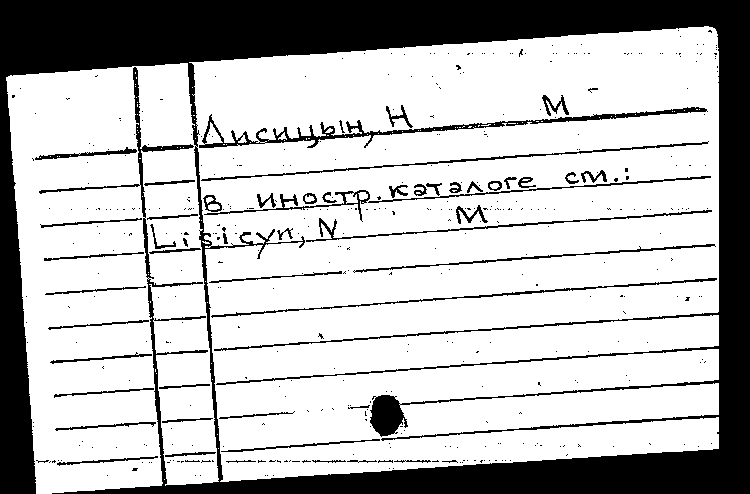 Лисицын, Н М
в иностр. каталоге см.:
Lisicyn, N M